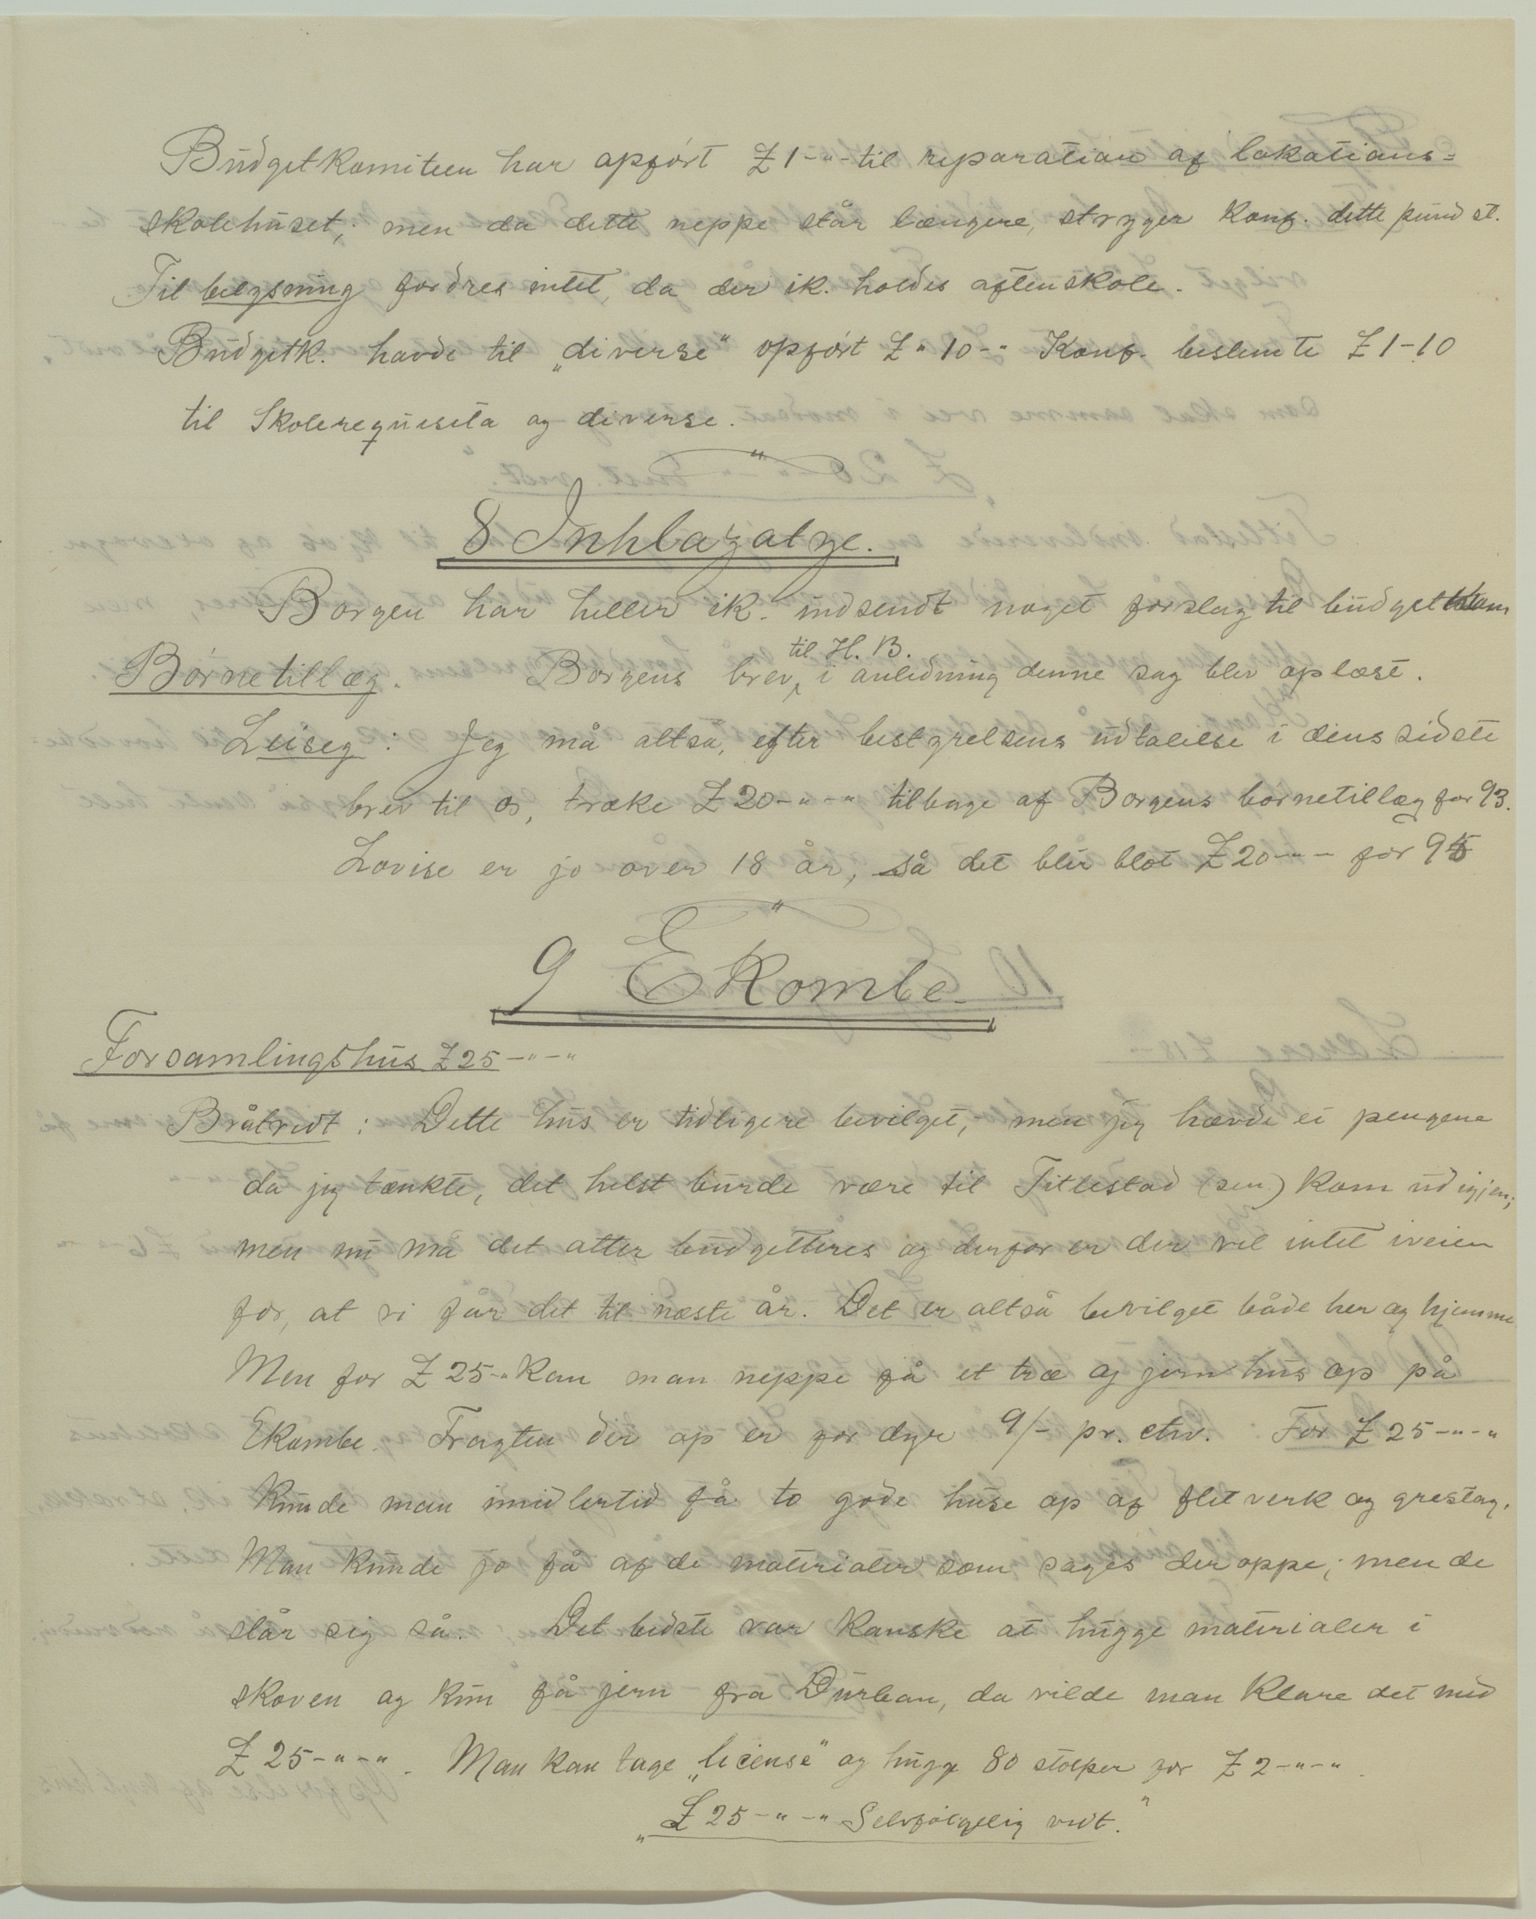 Budgetkomiteen har opført £1-"- til reparation af lokations=
skolehuset, men da dette neppe står længere, stryger Konf. dette pund st.
Til belysning fordres intet, da der ik. holdes aftenskole.
Budgetk. havde til „diverse" opført £"10-" Konf. bestemte £1-10
til Skolerequisita og diverse.
8 Inhlazatye.
Borgen har heller ik. indsendt noget forslag til budget
Børnetillæg. Borgens brev til H. B. i anledning denne sag blev oplæst.
Leiseg: Jeg må altså, efter bestyrelsens udtalelse i dens sidste
brev til os, trække £20-"-" tilbage af Borgens børnetillæg for 93.
Lovise er jo over 18 år, så det blir blot £20-"- for 95
9 Ekombe.
Forsamlingshus £25-"-"
Bråtvedt: Dette hus er tidligere bevilget, men jeg hævde ei pengene
da jeg tænkte, det helst burde være til Titlestad (sen.) kom ud igjen;
men nu må det atter budgetteres og derfor er der vel intet iveien
for, at vi får det til næste år. Det er altså bevilget både her og hjemme
Men for £25-" kan man neppe få et træ og jern hus op på
Ekombe. Fragten der op er for dyr 9/- pr. ctw. For £25-"-"
kunde man imidlertid få to gode huse op af fletverk og græstag.
Man kunde jo få af de materialer som sages deroppe; men de
slår sig så. Det bedste var kanske at hugge materialer i
skoven og kun få jern fra Durban, da vilde man klare det med
£25-"-". Man kan tage „license" og hugge 80 stolper for £2-"-".
„£25-"-" Selvfølgelig vedt."